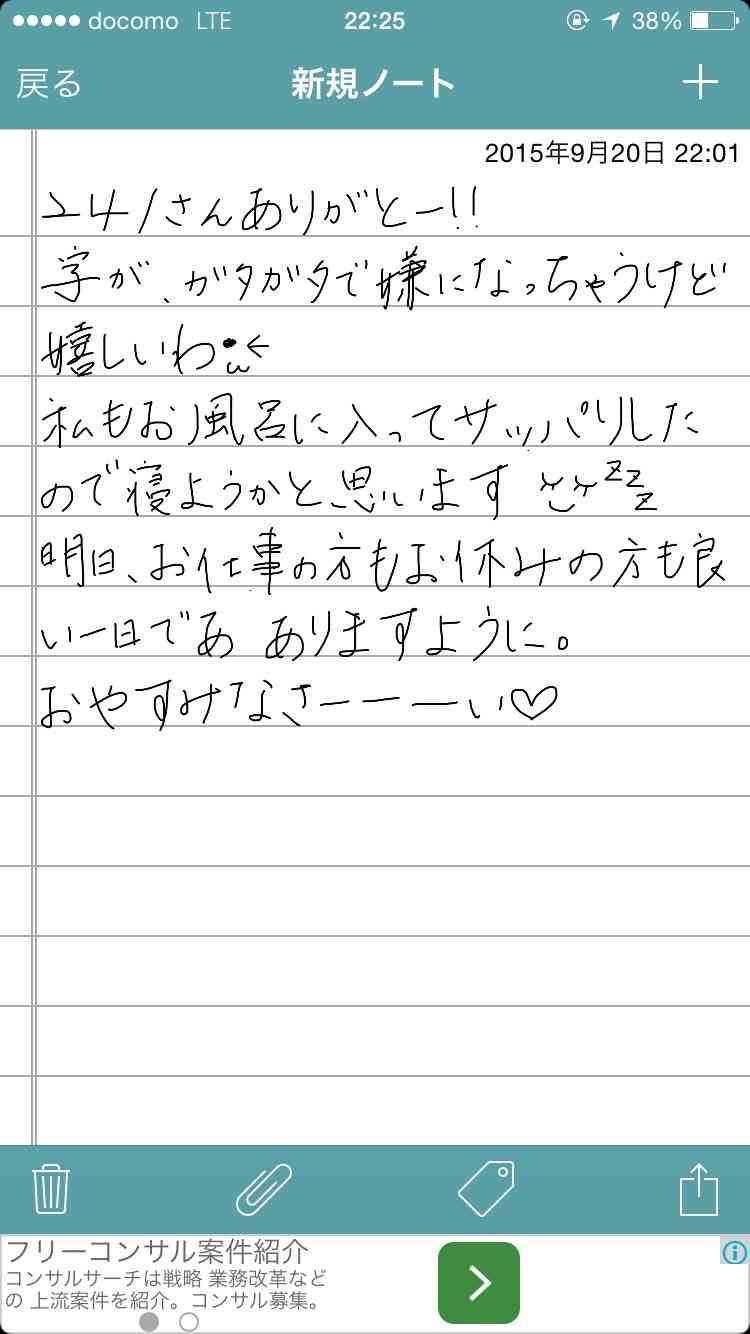 docomo LTE 22:25 38%
戻る 新規ノート
2015年9月20日 22:01
241さんありがとー!!
字が、ガタガタで嫌になっちゃうけど
嬉しいわ
私もお風呂に入ってサッパリした
ので寝ようかと思います zzz
明日、お仕事の方もお休みの方も良
い一日であ ありますように。
おやすみなさーーーい♡
フリーコンサル案件紹介
コンサルサーチは戦略 業務改革など
の 上流案件を紹介。コンサル募集。